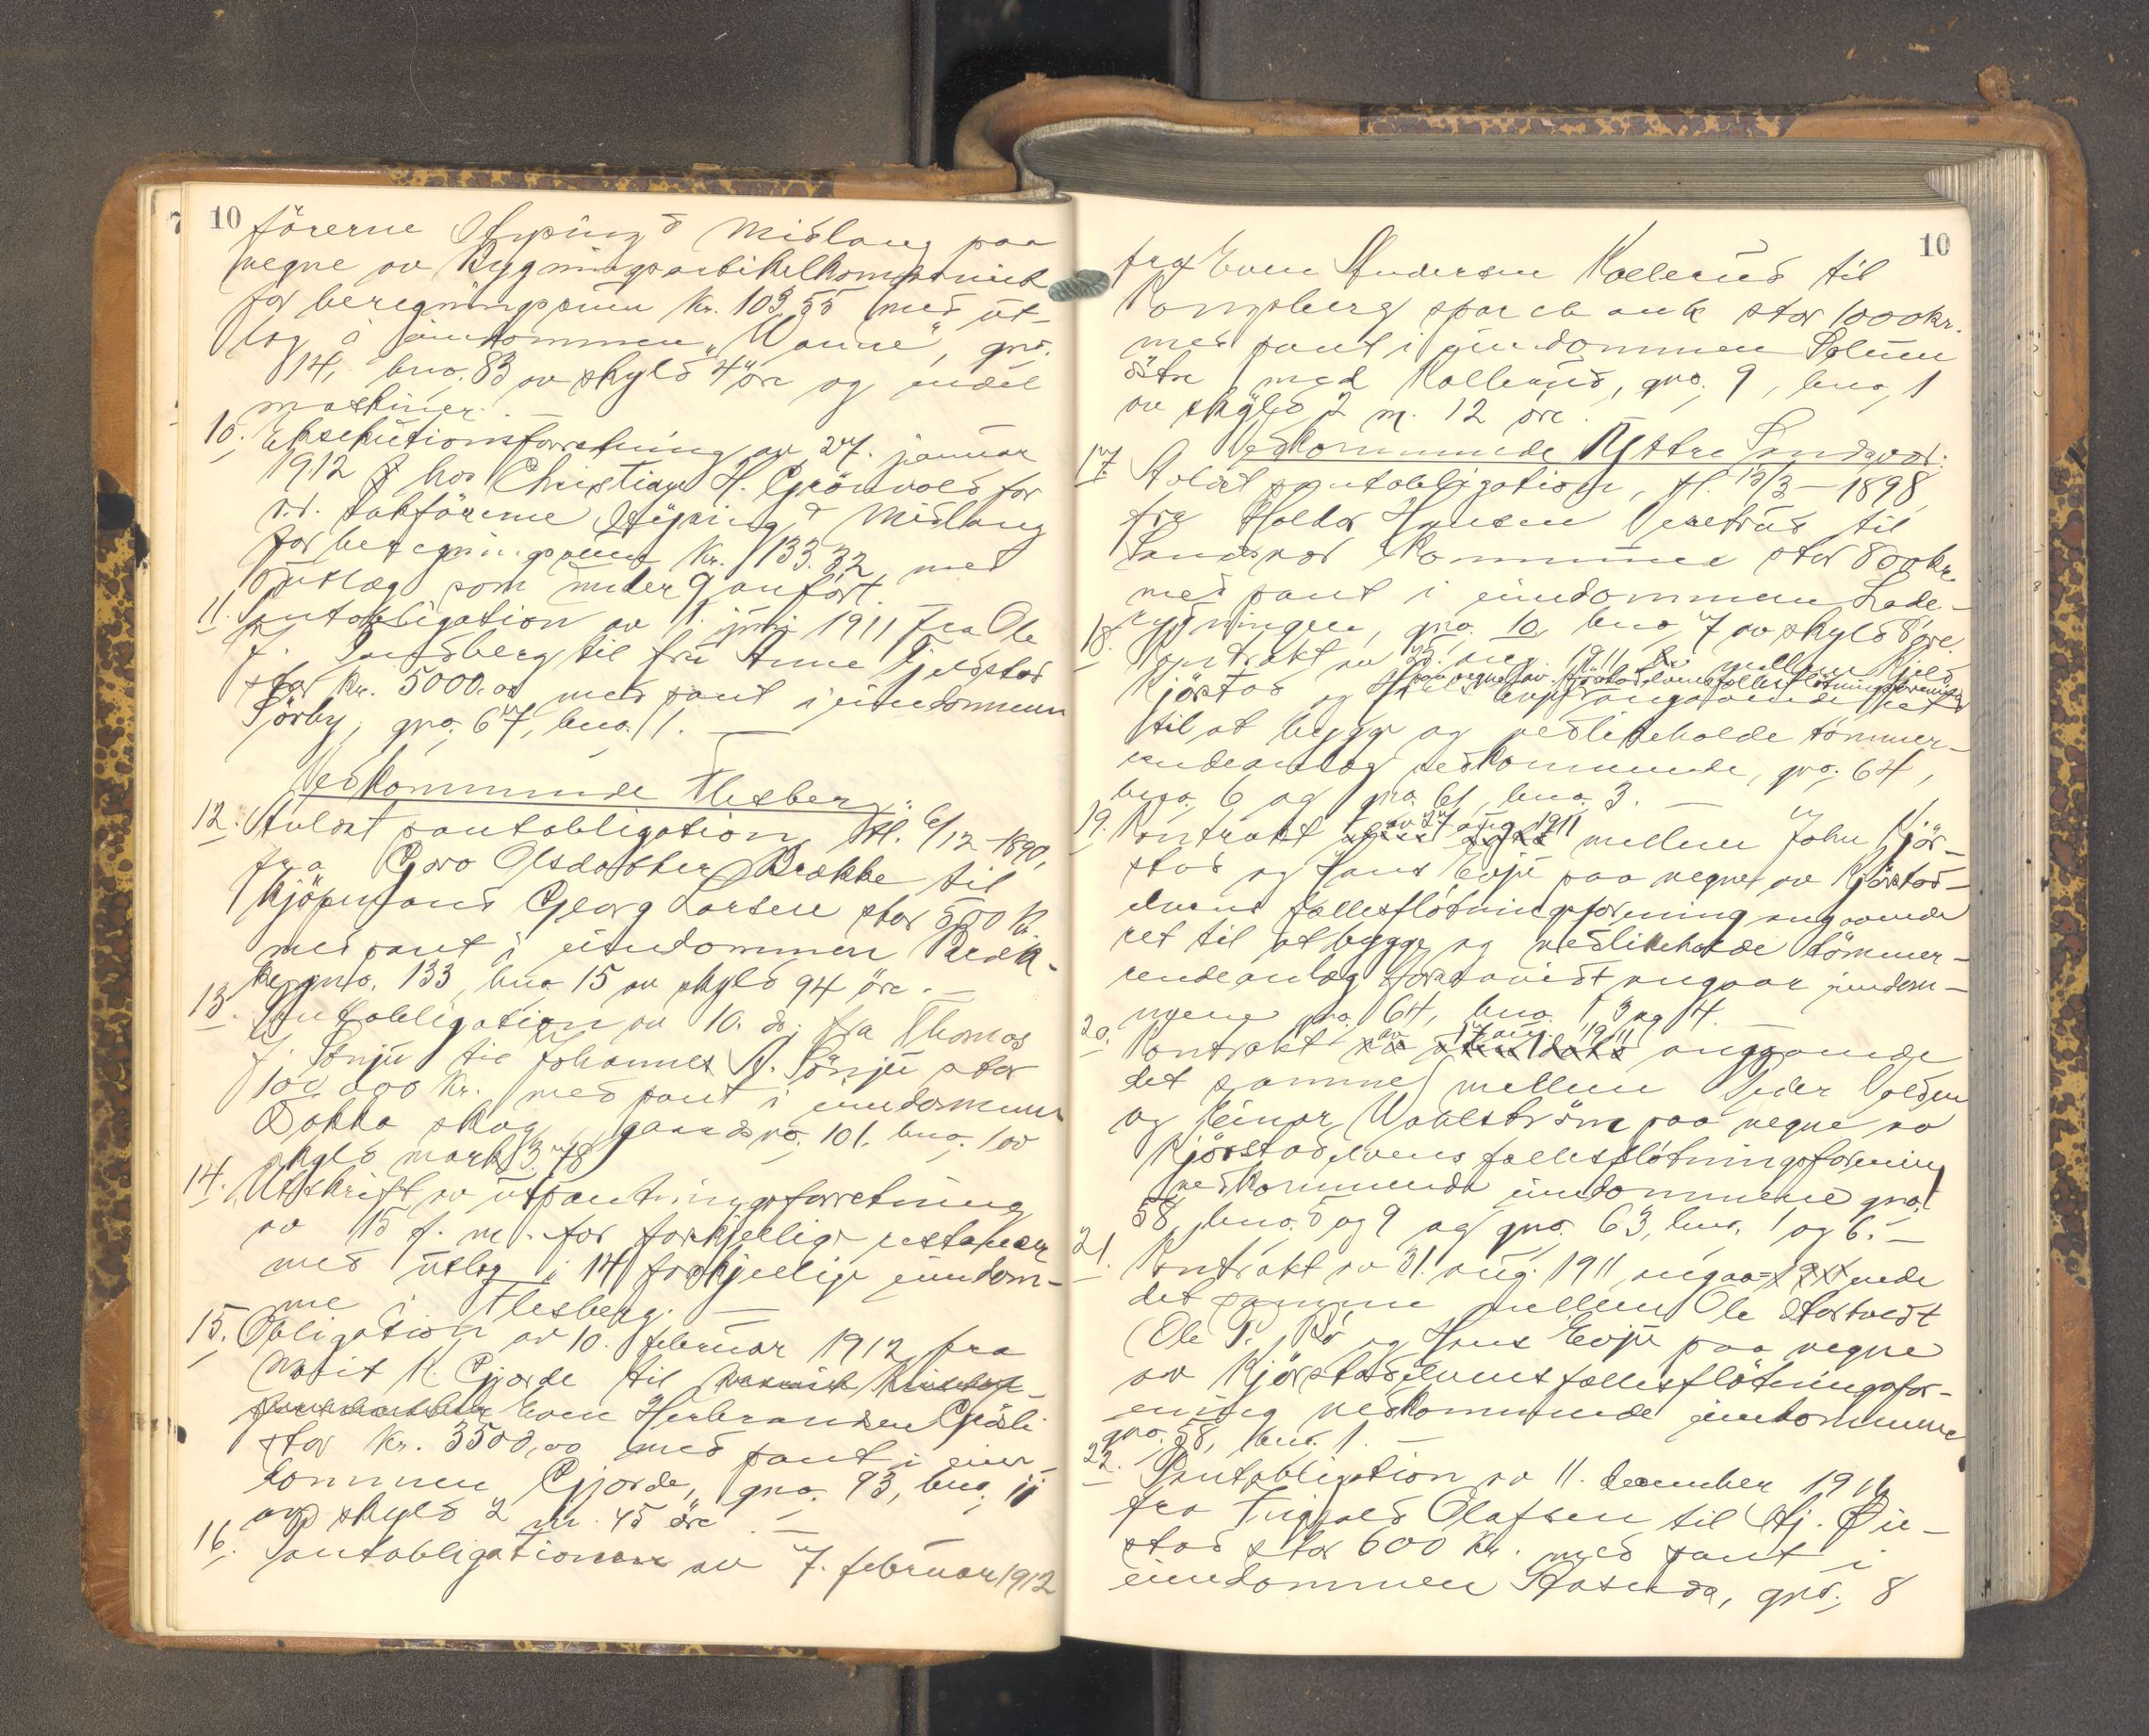 10
førerne Støping & Midlang paa
vegne av Bygningsartikelkompaniet
for beregningssum kr. 103,55 med ut-
læg i eiendommen "Wanne", gno.
14, bno. 83 av skyld 4 øre og endel
maskiner. —
10. Eksekutionsforretning av 27. januar
1912 hos Christian H. Grönvold for
s.s. sakförerne Støping & Midlang
for beregningssum kr. 133.32 med
utlæg som under 9 anfört.
11. Pantobligation av 1. juni 1911 fra Ole
J. Landsberg til fru Anne Fjeldstad
stor kr. 5000.00 med pant i eiendommen
Sörby, gno. 67, bno. 1. —
Vedkommende Flesberg:
12. Avlöst pantobligation, tl. 6/12-1890,
fra Goro Olsdatter Brække til
Kjöpmand Georg Larsen stor 500 kr.
med pant i eiendommen Bræk-
ke, gno. 133, bno. 15 av skyld 94 öre. —
13. Pantobligation av 10. ds. fra Thomas
J. Sönju til Johannes A. Sönju stor
100,000 kr. med pant i eiendommen
Dokka skog, gaardsno. 101. bno. 1 av
skyld mark 3.78
14. Utskrift av utpantningsforretning
av 15 f. m. for forskjellige restancer
med utlæg i 14 forskjellige eiendom-
me i Flesberg. —
15. Obligation av 10. februar 1912 fra
Marit K. Gjorde til
Even Herbrandsen Gjösli
stor kr. 3500,00 med pant i eien-
dommen Gjorde, gno. 93, bno. 11
av skyld 2 m. 45 öre. —
16. Pantobligation av 7. februar 1912
10
fra Even Andersen Kollerud til
Kongsberg sparebank stor 1000 kr.
med pant i eiendommen Solum
östre med Kollerud, gno. 9, bno. 1
av skyld 2 m. 12 öre.
Vedkommende Ytre Sandsvær:
17 Avlöst pantobligation, tl. 15/3-1898,
fra Halvor Hansen til
Sandsvær kommune stor 800 kr.
med pant i eiendommen Lade-
rydningen, gno. 10, bno. 7 av skyld öre.
18. Kontrakt av 25. aug. 1911 mellem Kjeld
paa vegne av Kjörstadelvens fællesflötningsforening
Kjörstad og angaaende ret
til at bygge og vedlikeholde tömmer-
rendeanlæg vedkommende, gno. 64,
bno. 6 og gno. 61, bno. 3. —
19. Kontrakt av 27 aug. 1911 mellem John Kjör-
stad og Hans Evju paa vegne av Kjörstad-
elvens fællesflötningsforening angaaende
ret til at bygge og vedlikeholde tömmer-
rendeanlæg forsaavidt angaar eiendom-
mene gno. 64, bno. 1, 3 og 4.
20. Kontrakt av 17 aug. 1911 angaaende
det samme mellem Peder Volden
og Einar Wahlström paa vegne av
Kjörstadelvens fællesflötningsforening
vedkommende eiendommene gno.
58, bno. 5 og 9 og gno. 63, bno. 1 og 6. —
21. Kontrakt av 31. aug. 1911 angaaende
det samme mellem Ole Stortvedt
(Ole P. og Hans Evju paa vegne
av Kjörstadelvens fællesflötningsfor-
ening vedkommende eiendommene
gno. 58, bno. 1. —
22. Pantobligation av 11. december 1911
fra Olafsen til Hj. Øie-
stad stor 600 kr. med pant i
eiendommen, gno. 8